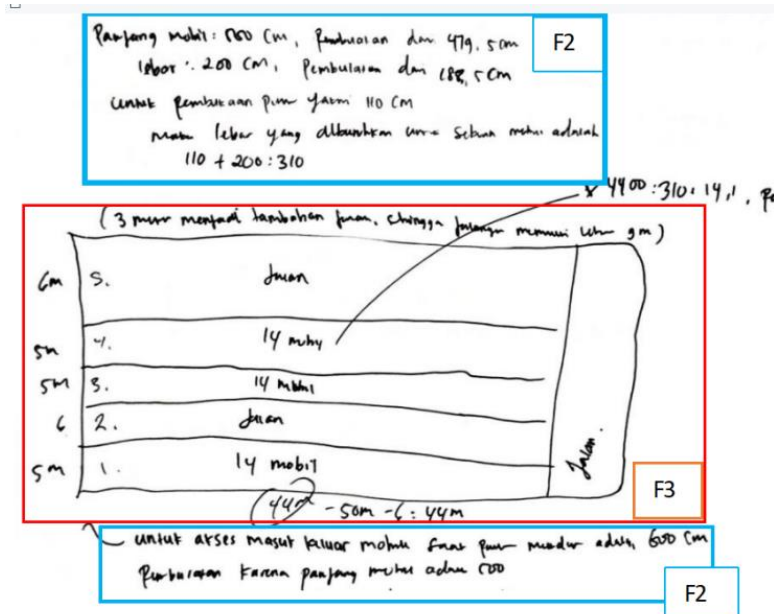 Panjang mobil: 500 cm, Pembulatan dari 479,5 cm
F2
lebar : 200 cm, Pembulatan dari 188,5 cm
untuk pembukaan pintu yakni 110 cm
maka lebar yang dibutuhkan untuk sebuah mobil adalah
110 + 200 : 310
* 4400 : 310 : 14,1
(3 meter menjadi tambahan jalan, sehingga jalannya memiliki lebar 9m)
6m 5. Jalan
5m 4. 14 mobil
5m 3. 14 mobil
6 2. Jalan
5m 1. 14 mobil
Jalan.
F3
44m - 50m - 6 : 44m
untuk akses masuk keluar mobil saat mundur adalah 600 cm
Pembulatan karena panjang mobil adalah 500
F2